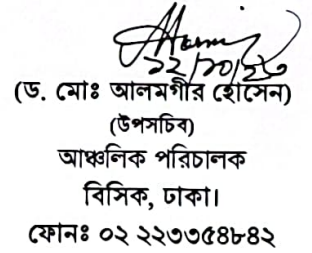 ১২/১০/২৩
(ড. মোঃ আলমগীর হোসেন)
(উপসচিব)
আঞ্চলিক পরিচালক
বিসিক, ঢাকা।
ফোনঃ ০২ ২২৩৩৫৪৮৪২